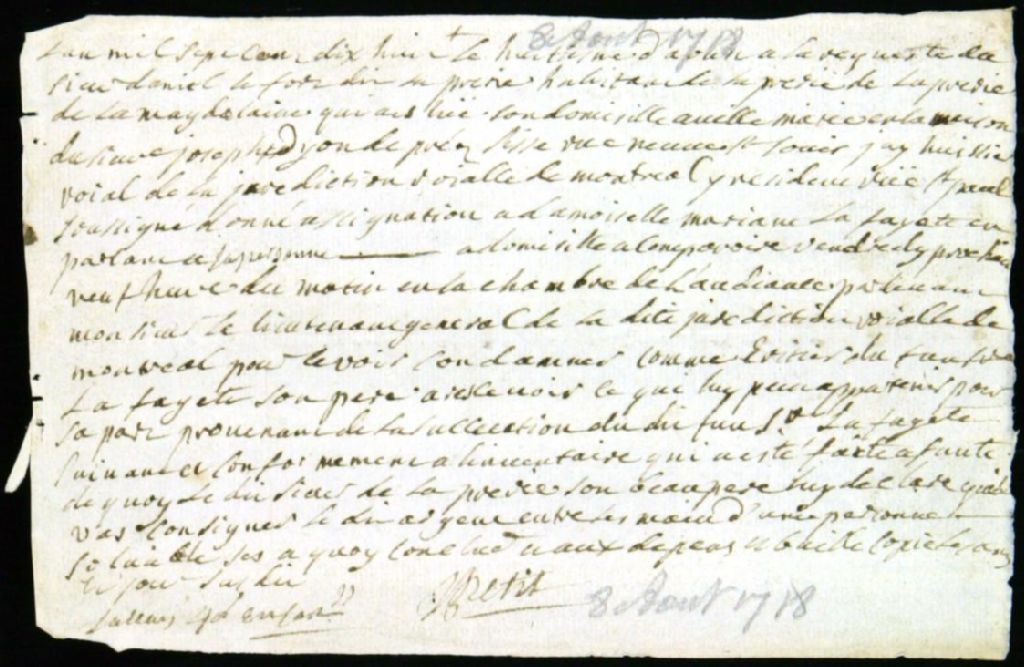 8 Aout 1718
Lan mil sept cent dix huit le huitiesme d'aoust a la requeste du
sieur daniel le fort dit la prerie habitant de la prerie de la prerie
de la magdelaine qui a eslue son domisille a ville marie en la maison
du sieur joseph rue neuve st jay huissier
roial de la jurediction roialle de montreal y residant rue st paul
soussigné donné assignation a damoiselle mariane La fayete en
parlant a sa personne a domisille a comparoire vendredy prochain
neuf heure du matin en la chambre de Laudiance par devant
monsieur le lieutenant general de la dite juredition roialle de
montreal pour le voir condamner comme du
La fayete son pere a recevoir ce que luy peut appartenir pour
sa part provenant de la succession du dit feu sr La fayete
suivant et conformement a linventaire qui a esté faite a faute
de quoy le dit sieur de la prerie son beaupere luy declare quil
vas consigner le dit argent entre les main d'une personne
a quoy conclud aux depens et baillé copie les an
et jour susdit
JPetit
8 Aout 1718